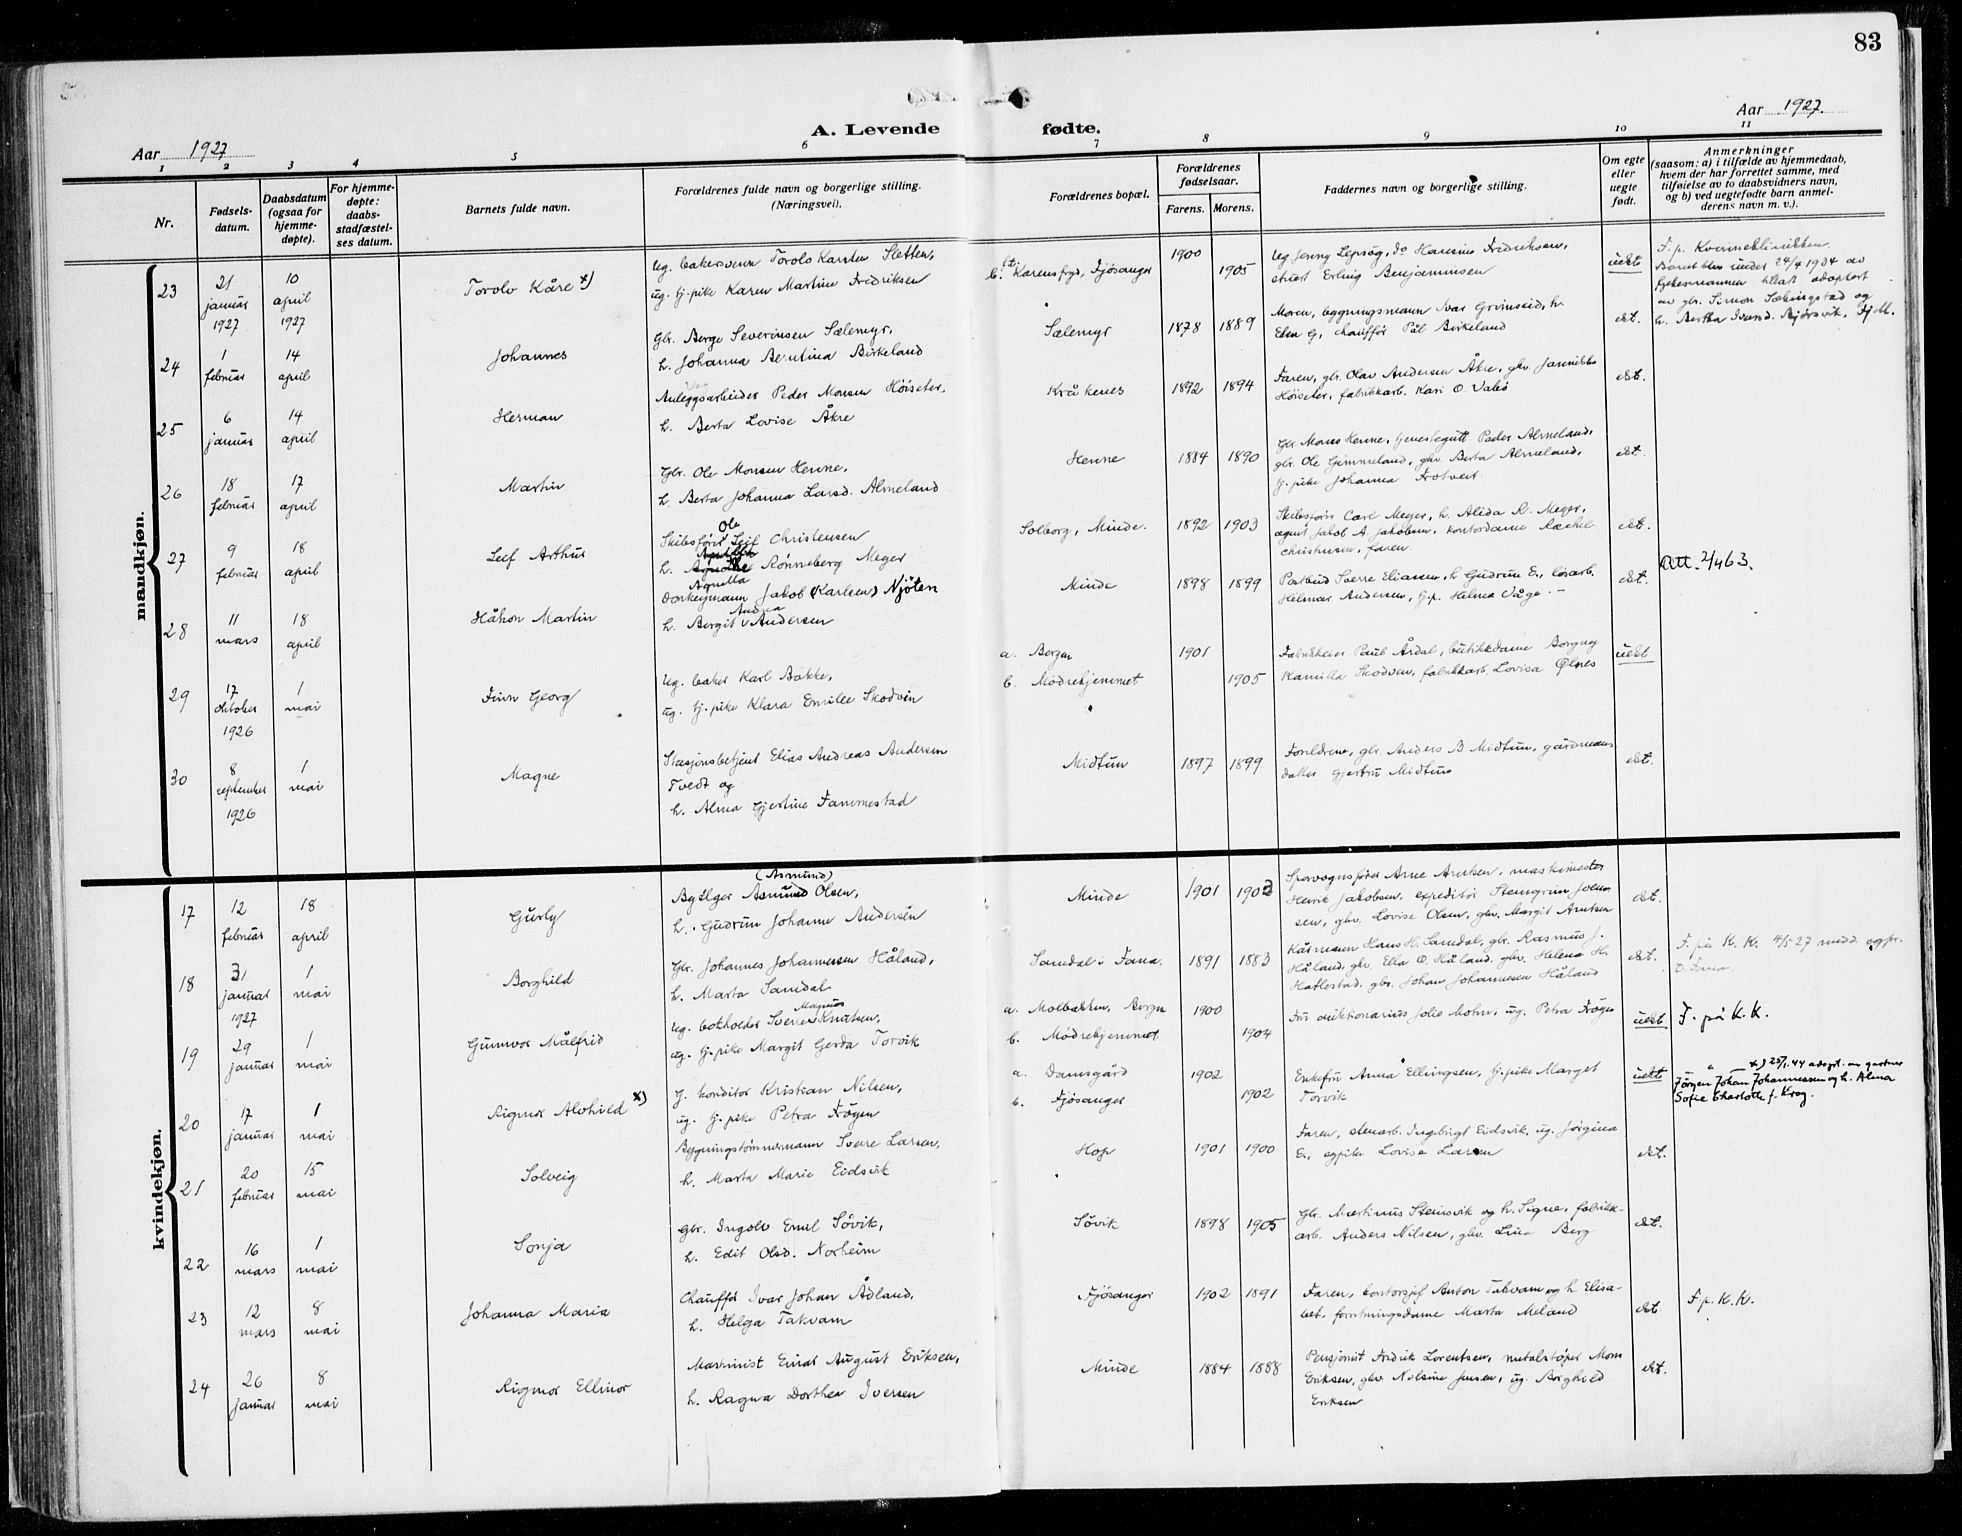 83
Aar 1927
A. Levende fødte.
Aar 1927.
1 2 3 4 5 6 7 8 9 10 11
Nr.
Fødsels-
datum.
Daabsdatum
(ogsaa for
hjemme-
døpte).
For hjemme-
døpte:
daabs-
stadfæstel-
ses datum.
Barnets fulde navn.
Forældrenes fulde navn og borgerlige stilling.
(Næringsvei).
Forældrenes bopæl.
Forældrenes
fødselsaar.
Farens. Morens.
Faddernes navn og borgerlige stilling.
Om egte
eller
uegte
født.
Anmerkninger
(saasom: a) i tilfælde av hjemmedaab,
hvem der har forrettet samme, med
tilføielse av to daabsvidners navn,
og b) ved uegtefødte barn anmel-
derens navn m. v.).
mandkjøn.
23
21
januar
1927
10
april
1927
Torolv Kåre x)
Ug. bakersvenn Torolv Karsten Sletten,
ug. tj.pike Karen Martine Fredriksen
b. Karensfryd, Fjøsanger
1900
1905
Ug Jenny Lepsøg, Do Hansine Fredriksen,
Erling Benjaminsen
uekt
F. p. Kvinneklinikken
Barnet blev under 24/4 1934 av
tillatt adoptert
av gbr. Simon Sekkingstad og
h. Bertha Bjorsvik, Fjell.
24
1
februar
14
april
Johannes
Gbr. Berge Severinsen Sælemyr,
h. Johanna Bentina Birkeland
Sælemyr
1878 1889
Moren, bygningsmann Ivar Grimseid, h.
Elen G, chauffør Pål Birkeland
ekt.
25
6
januar
14
april
Herman
Anleggsarbeider Peder Monsen Høiseter,
h. Berta Lovise Åkre
Kråkenes
1892 1894
Faren, gbr. Olav Andersen Åkre, gkv. Jannikke
Høiseter, fabrikkarb. Kari O. Valø
ekt.
26
18
februar
17
april
Martin
Gbr. Ole Monsen Henne,
h. Berta Johanna Larsd. Almeland
Henne
1884 1890
Gbr Mons Henne, tjenestegutt Peder Almeland,
gbr. Ole Gimmeland, gkv Berta Almeland,
tj.pike Johanna Trotveit
ekt.
27
9
februar
18
april
Leif Arthur
Ole
Skibsfører Leif Christensen
h. Rønneberg Meyer
Agnella
Solborg, Minde.
1892 1903
Skibsfører Carl Meyer, h. Alida R. Meyer,
agent Jakob A. Jakobsen, kontordame Rachel
Christensen, faren
ekt.
28
11
mars
18
april
Håkon Martin
Donkeymann Jakob (Karlsen) Njöten
Andrea
h. Bergit v Andersen
Minde
1898 1899
Postbud Sverre Eliassen, h Gudrun E., løsarb.
Helmar Andersen, tj.p. Helma Våge. -
ekt.
Att. 2/4 63.
29
17
oktober
1926
1
mai
Finn Georg
Ug. baker Karl Bakke,
ug. tj.pike Klara Emilie Skodvin
a. Bergen
b. Mødrehjemmet
1901
1905
Fabrikkeier Paul Årdal, butikkdame Borgny
Kamilla Skodven, fabrikkarb. Lovisa Ølnes
uekt
30
8
september
1926
1
mai
Magne
Stasjonsbetjent Elias Andreas Andersen
Tvedt og
h. Alma Gjertine Fammestad
Midtun
1897 1899
Foreldrene, gbr. Anders B Midtun, gårdmanns
datter Gjertru Midtun
ekt.
kvindekjøn.
17
12
februar
18
april
Gurly
(Asmund)
Byselger Asmund Olsen,
h. Gudrun Johanne Andersen
Minde
1901 1903
Sporvognsfører Arne Arntsen, maskinmester
Henrik Jakobsen, expeditør Steingrim Iven-
sen, gkv. Lovise Olsen, gkv. Margit Arntsen
ekt.
18
31
januar
1927
1
mai
Borghild
Gbr. Johannes Johannesen Håland,
h. Marta Samdal
Samdal i Fana.
1891 1883
Kårmann Hans H. Samdal, gbr. Rasmus J.
Håland, gkv. Ella O. Håland, gkv. Helena H.
Hatlestad, gbr. Johan Johannesen Håland
ekt.
F. på K. K. 4/5 27 medd. sogpr.
t. Fana.
19
29
januar
1
mai
Gunnvor Målfrid
Magnus
Ug. bokholder Sverre Knutsen,
ug. tj.pike Margit Gerda Torvik
a. Molbakken, Bergen
b. Mødrehjemmet
1900
1904
Fru auktionarius Jolie Mohn, ug. Petra Frøyen
uekt
F. på K. K.
20
17
januar
1
mai
Rigmor Alvhild x)
G. konditor Kristian Nilsen,
ug. tj.pike Petra Frøyen
a. Damsgård
b. Fjøsanger
1902
1902
Enkefru Anna Ellingsen, tj.pike Marget
Torvik
uekt
" — x) 25/1.44 adopt. av gartner
Jørgen Johan Johannessen og h. Alma
Sofie Charlotte f. Krog.
21
20
februar
15
mai
Solveig
Bygningstømmermann Sverre Larsen,
h. Marta Marie Eidsvik
Hop
1901 1900
Faren, stenarb. Ingebrigt Eidsvik, ug. Jørgina
E., ugpike Lovise Larsen
ekt.
22
16
mars
1
mai
Sonja
Gbr. Ingolv Emil Søvik,
h. Edit Olsd. Norheim
Søvik
1898 1905
Gbr. Martinus Steinsvik og h. Signe, fabrikk-
arb. Anders Nilsen, gkv. Lina Berg
ekt.
23
12
mars
8
mai
Johanna Maria
Chauffør Ivar Johan Ådland,
h. Helga Takvam
Fjøsanger
1902 1891
Faren, kontorsjef Anton Takvam og h Elisa-
bet, forretningsdame Marta Meland
ekt.
F. p. K. K.
24
26
januar
8
mai
Rigmor Ellinor
Maskinist Einar August Eriksen,
h. Ragna Dorthea Iversen
Minde
1884 1888
Pensjonist Fredrik Lorentsen, metalstøper Mons
Eriksen, gkv Nilsine Jensen, ug. Borghild
Eriksen
ekt.